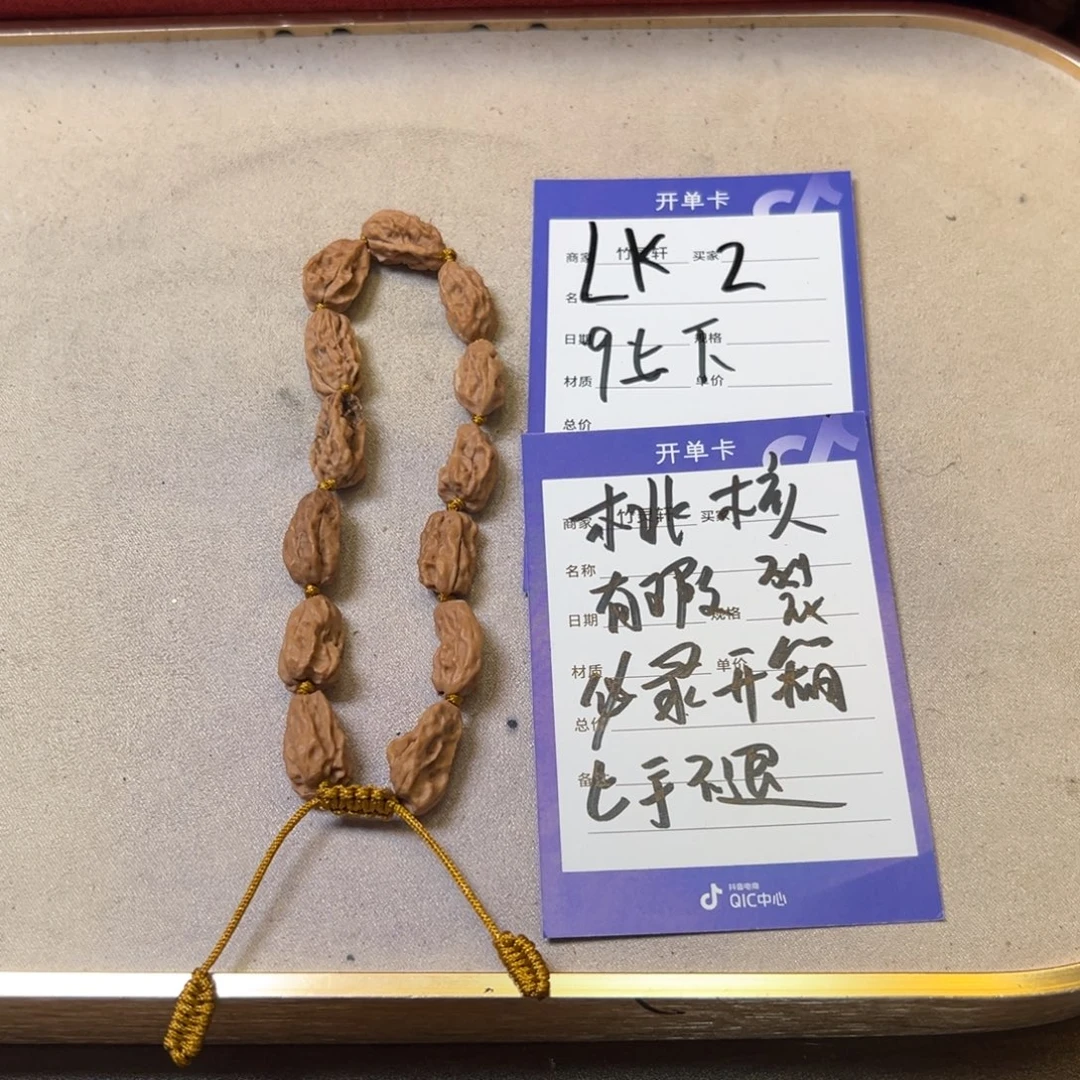 开单卡
商家 竹 轩 买家
LK 2
名
日期 规格
9上下
材质 单价
总价
开单卡
商家 竹 轩 买家
桃核
名称
有瑕裂
日期 规格
材质 单价
必录开箱
总价
备
上手不退
抖音电商
QIC中心